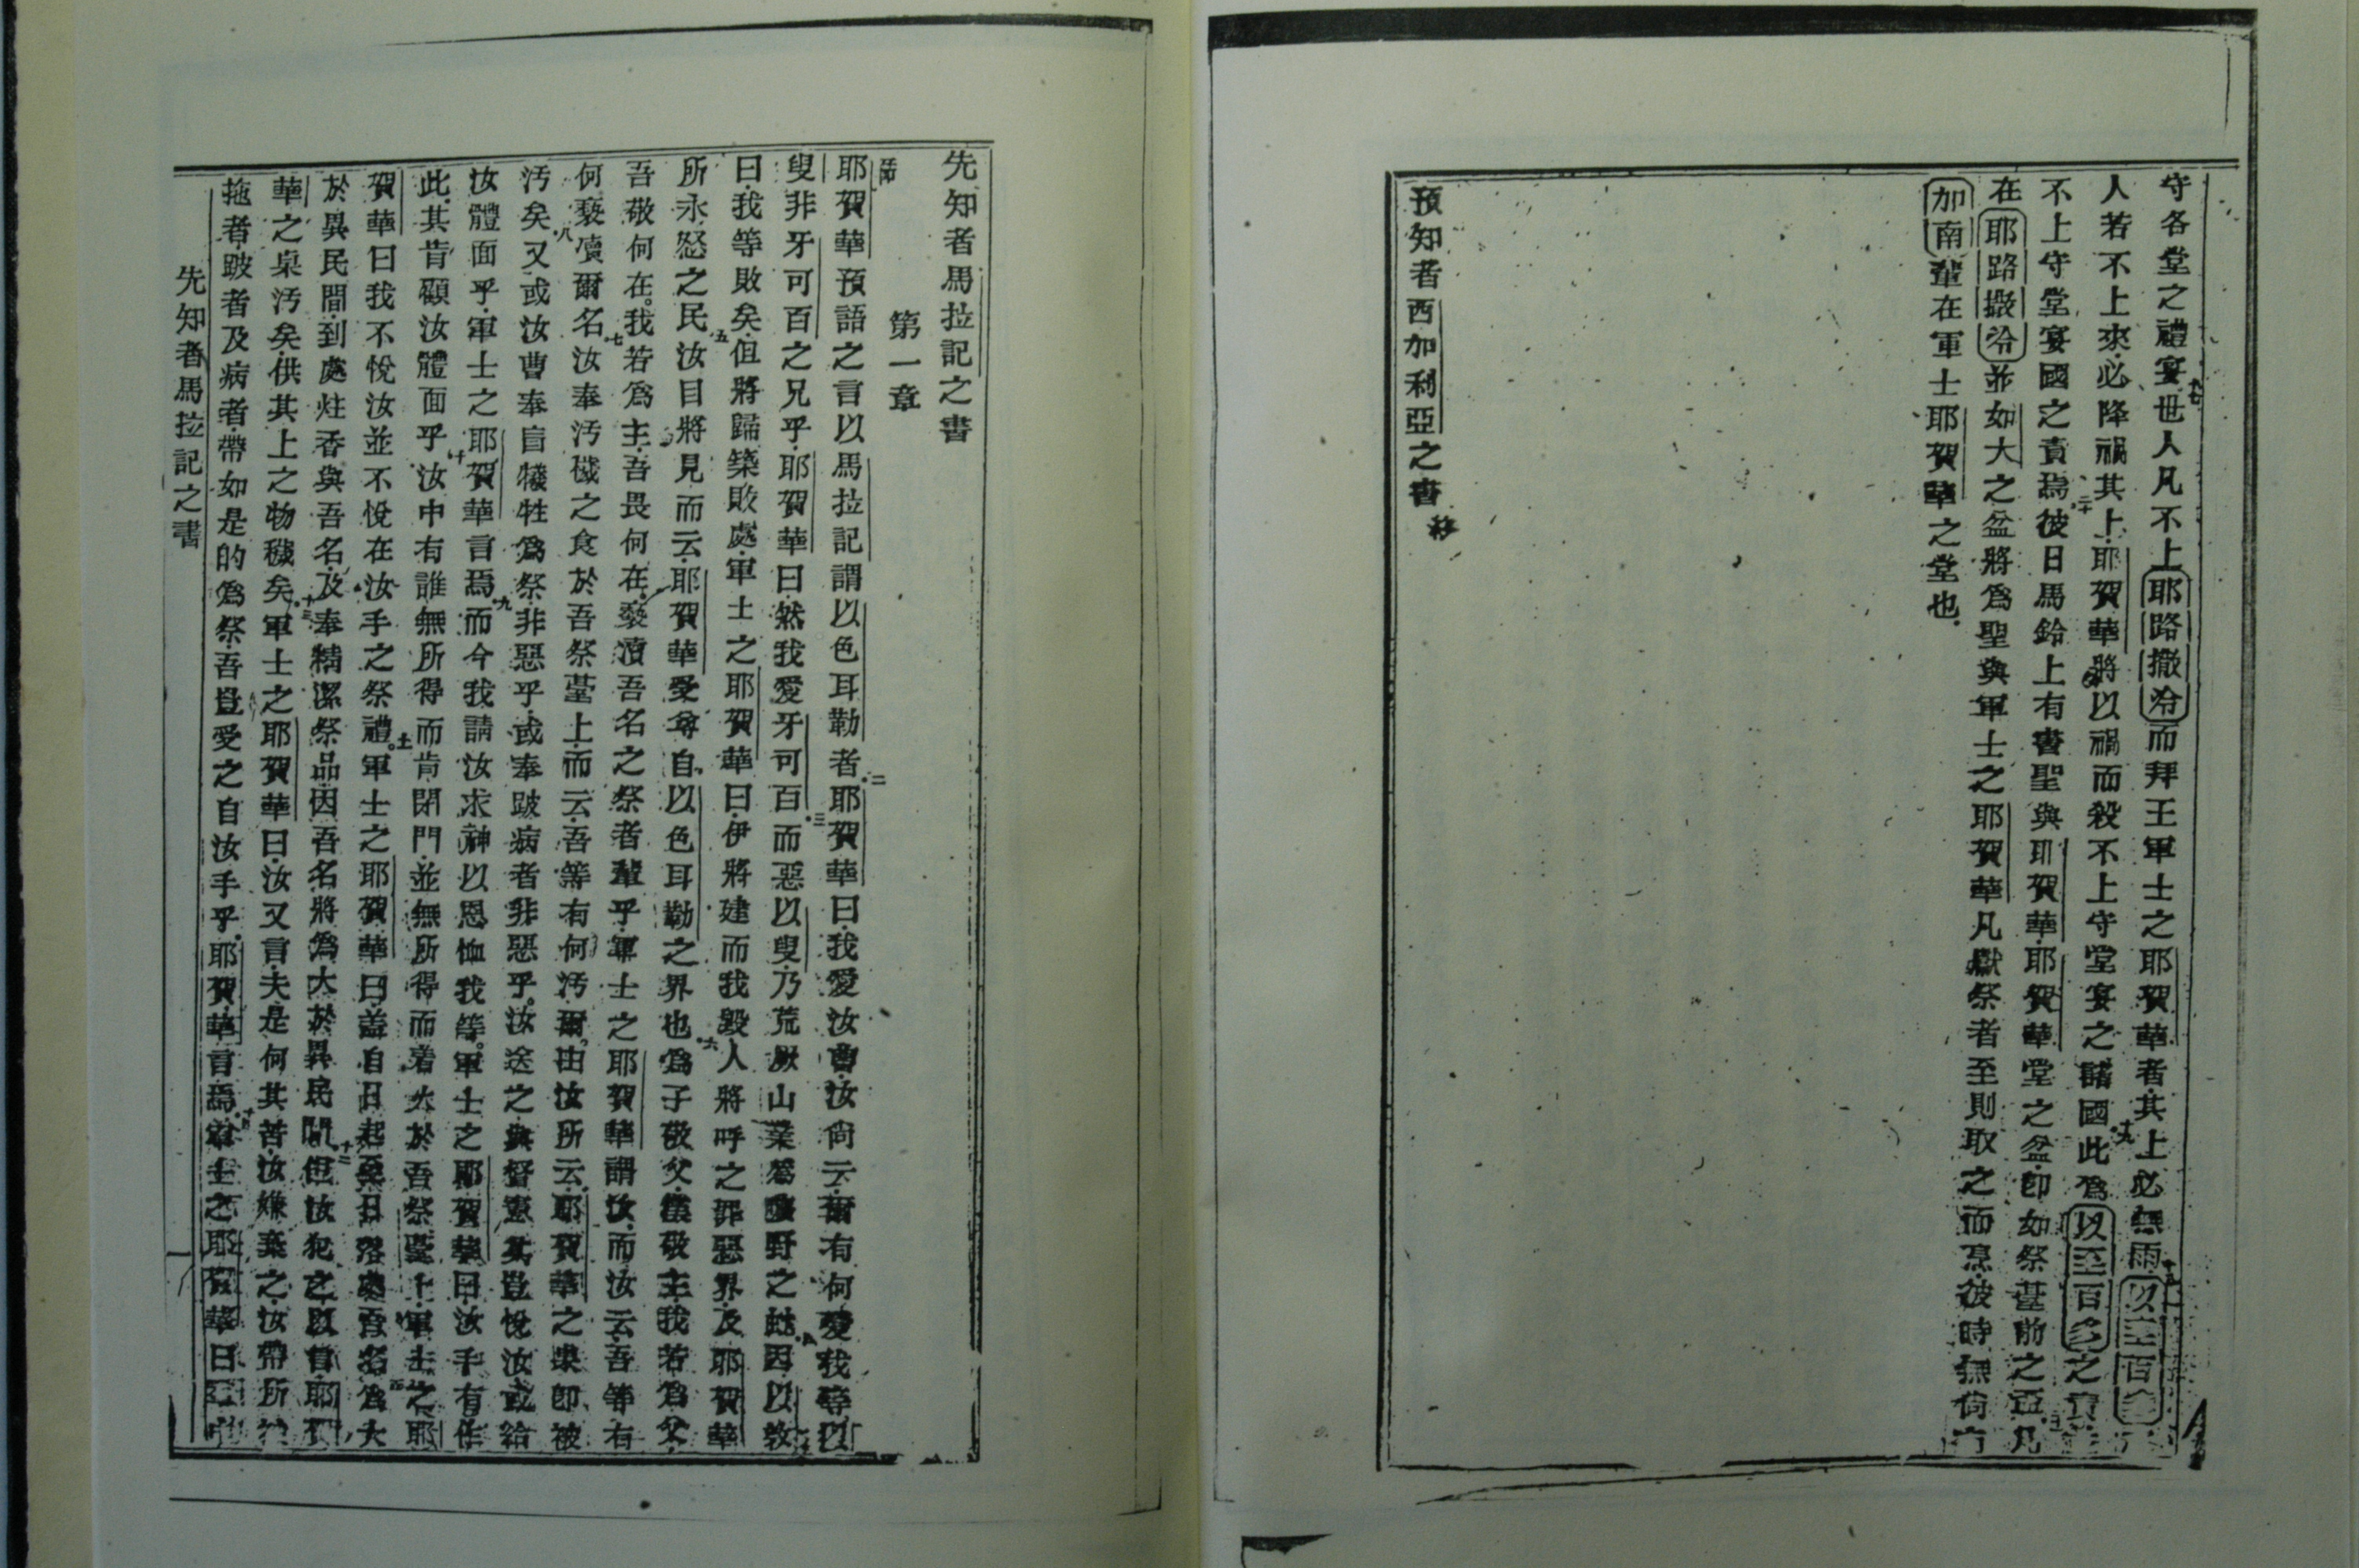 守各堂之禮宴世人凡不上耶路撒冷而拜王軍士之耶賀華者其上必無雨以至百多
人若不上來必降禍其上耶賀華將以禍而殺不上守堂宴之諸國此爲以至百多之
不上守堂宴國之責焉彼日馬鈴上有書聖與耶賀華耶賀華堂之盆卽如祭臺前之盃凡
在耶路撒冷並如大之盆將爲聖與軍士之耶賀華凡獻祭者至則取之而烹彼時無
加南輩在軍士耶賀華之堂也
預知者西加利亞之書
先知者馬拉記之書
第一章
耶賀華預語之言以馬拉記謂以色耳勒者二耶賀華曰我愛汝曹汝尙云爾有何愛我等以
叟非牙可百之兄乎耶賀華曰然我愛牙可百三而惡以叟乃荒厥山業爲曠野之因以
曰我等敗矣但將歸築敗處軍士之耶賀華曰伊將建而我毀人將呼之罪惡界及耶賀華
所永怒之民五汝目將見而云耶賀華受尊自以色耳勒之界也六爲子敬父僕敬主我若爲父
吾敬何在我若爲主吾畏何在褻瀆吾名之祭者輩乎軍士之耶賀華謂汝而汝云吾等有
何褻瀆爾名七汝奉汚穢之食於吾祭臺上而云吾等有何汚爾由汝所云耶賀華之桌卽被
汚矣八又或汝曹奉盲犧牲爲祭非惡乎或奉跛病者非惡乎汝送之與督憲其豈悅汝或給
汝體面乎軍士之耶賀華言焉九而今我請汝求神以恩恤我等軍士之耶賀華曰汝手有作
此其肯顧汝體面乎十汝中有誰無所得而肯閉門並無所得而着火於吾祭臺上軍士之耶
賀華曰我不悅汝並不悅在汝手之祭禮十一軍士之耶賀華曰蓋自日起至日落處吾名爲大
於異民間到處炷香與吾名及奉精潔祭品因吾名將爲大於異民間十二但汝犯之以曾耶賀
華之桌汚矣供其上之物穢矣十三軍士之耶賀華曰汝又言夫是何其苦汝嫌棄之汝帶所
拖者跛者及病者帶如是的爲祭吾豈受之自汝手乎耶賀華言焉十四軍士之耶賀華曰
先知者馬拉記之書
一